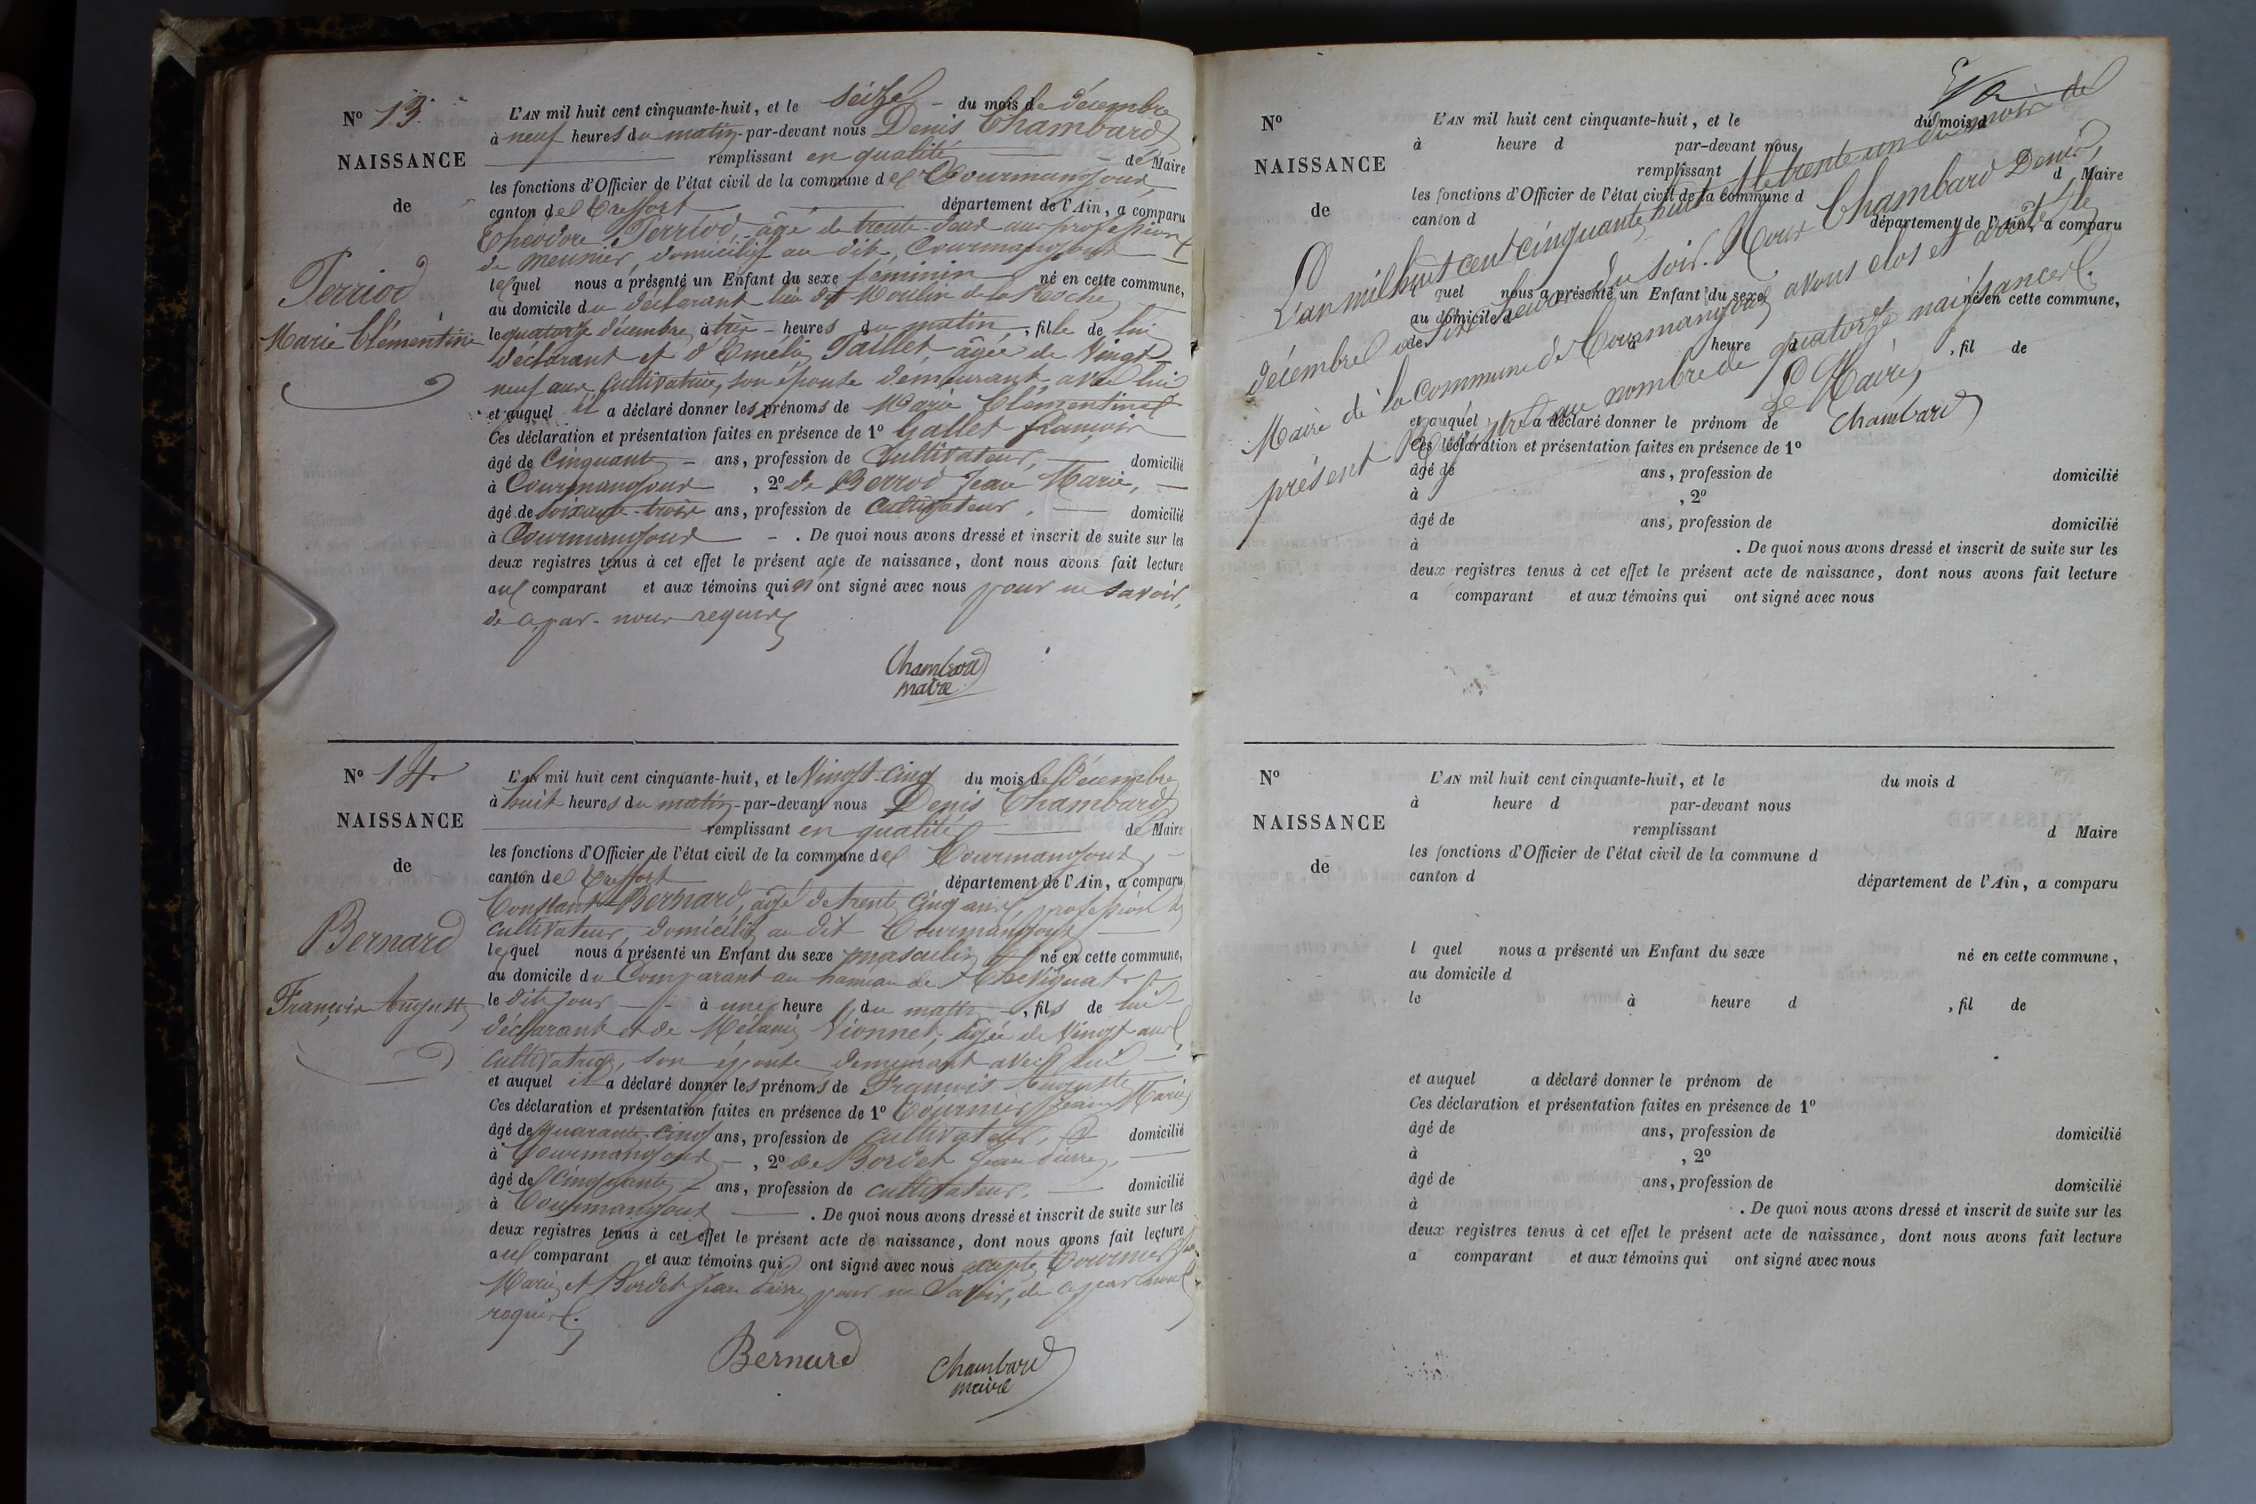 Nº 13.
NAISSANCE
de
Perriod
Marie Clémentine
L'AN mil huit cent cinquante-huit, et le seize du mois de décembre
à neuf heures du matin par-devant nous Denis Chambard
remplissant en qualité de Maire
les fonctions d'Officier de l'état civil de la commune de Courmangoux,
canton de Treffort département de l'Ain, a comparu
Théodore Perriod, âgé de trente deux ans profession
de meunier, domicilié au dit Courmangoux
lequel nous a présenté un Enfant du sexe féminin né en cette commune,
au domicile du déclarant lieu dit Moulin de la Roche
le quatorze décembre à trois heures du matin, fille de lui
déclarant et d'Emélie Paillet âgée de vingt
neuf ans cultivatrice, son épouse demeurant avec lui
et auquel il a déclaré donner les prénoms de Marie Clémentine
Ces déclaration et présentation faites en présence de 1º Gallet françois
âgé de cinquante ans, profession de Cultivateur, domicilié
à Courmangoux, 2º de Berrod Jean Marie,
âgé de soixante-trois ans, profession de Cultivateur, domicilié
à Courmangoux. De quoi nous avons dressé et inscrit de suite sur les
deux registres tenus à cet effet le présent acte de naissance, dont nous avons fait lecture
au comparant et aux témoins qui n'ont signé avec nous pour ne savoir,
de ce par nous requis
Chambard
maire
Nº 14.
NAISSANCE
de
Bernard
François Auguste
L'AN mil huit cent cinquante-huit, et le Vingt-cinq du mois de Décembre
à huit heures du matin par-devant nous Denis Chambard
remplissant en qualité de Maire
les fonctions d'Officier de l'état civil de la commune de Courmangoux,
canton de Treffort département de l'Ain, a comparu
Constant Bernard, âgé de trente cinq ans, profession de
cultivateur, domicilié au dit Courmangoux
lequel nous a présenté un Enfant du sexe masculin né en cette commune,
au domicile du Comparant au hameau de Chevignat
le dit jour à une heure du matin, fils de lui
déclarant et de Mélanie Vionnet, âgée de Vingt ans
cultivatrice, son épouse demeurant avec lui
et auquel il a déclaré donner les prénoms de François Auguste
Ces déclaration et présentation faites en présence de 1º Cournier Jean Marie
âgé de quarante-cinq ans, profession de cultivateur, domicilié
à Courmangoux, 2º de Bordet Jean Pierre,
âgé de Cinquante ans, profession de cultivateur, domicilié
à Courmangoux. De quoi nous avons dressé et inscrit de suite sur les
deux registres tenus à cet effet le présent acte de naissance, dont nous avons fait lecture
au comparant et aux témoins qui ont signé avec nous excepté Cournier Jean
Marie et Bordet Jean Pierre pour ne savoir, de ce par nous
requis.
Bernard
Chambard
maire
Nº
NAISSANCE
de
L'AN mil huit cent cinquante-huit, et le du mois d
à heure d par-devant nous
remplissant d Maire
les fonctions d'Officier de l'état civil de la commune d
canton d département de l'Ain, a comparu
l quel nous a présenté un Enfant du sexe né en cette commune,
au domicile d
le à heure d, fil de
et auquel a déclaré donner le prénom de
Ces déclaration et présentation faites en présence de 1º
âgé de ans, profession de domicilié
à, 2º
âgé de ans, profession de domicilié
à. De quoi nous avons dressé et inscrit de suite sur les
deux registres tenus à cet effet le présent acte de naissance, dont nous avons fait lecture
a comparant et aux témoins qui ont signé avec nous
L'an mil huit cent cinquante huit et le trente un du mois de
décembre à six heures du soir. Nous Chambard Denis,
Maire de la commune de Courmangoux avons clos et arrêté le
présent Registre au nombre de quatorze naissances.
Le Maire,
Chambard
Nº
NAISSANCE
de
L'AN mil huit cent cinquante-huit, et le du mois d
à heure d par-devant nous
remplissant d Maire
les fonctions d'Officier de l'état civil de la commune d
canton d département de l'Ain, a comparu
l quel nous a présenté un Enfant du sexe né en cette commune,
au domicile d
le à heure d, fil de
et auquel a déclaré donner le prénom de
Ces déclaration et présentation faites en présence de 1º
âgé de ans, profession de domicilié
à, 2º
âgé de ans, profession de domicilié
à. De quoi nous avons dressé et inscrit de suite sur les
deux registres tenus à cet effet le présent acte de naissance, dont nous avons fait lecture
a comparant et aux témoins qui ont signé avec nous